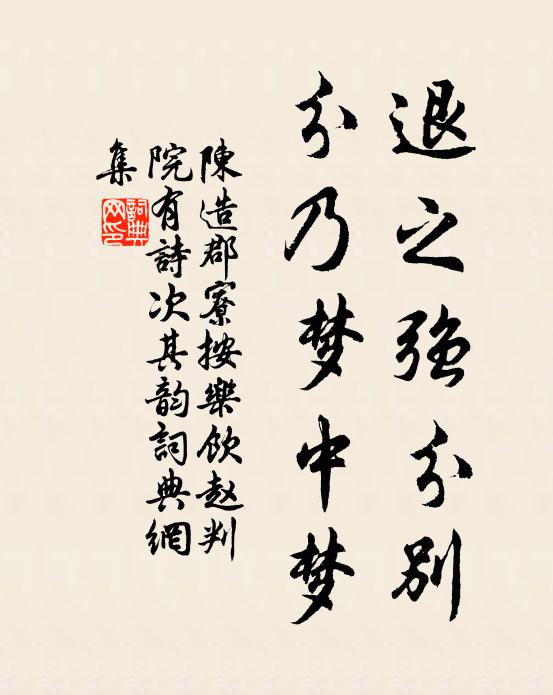 退之強分別
分乃梦中梦
陳造郡寮按樂飲赵判
院有詩次其韵詞典網
集
詞典
网印